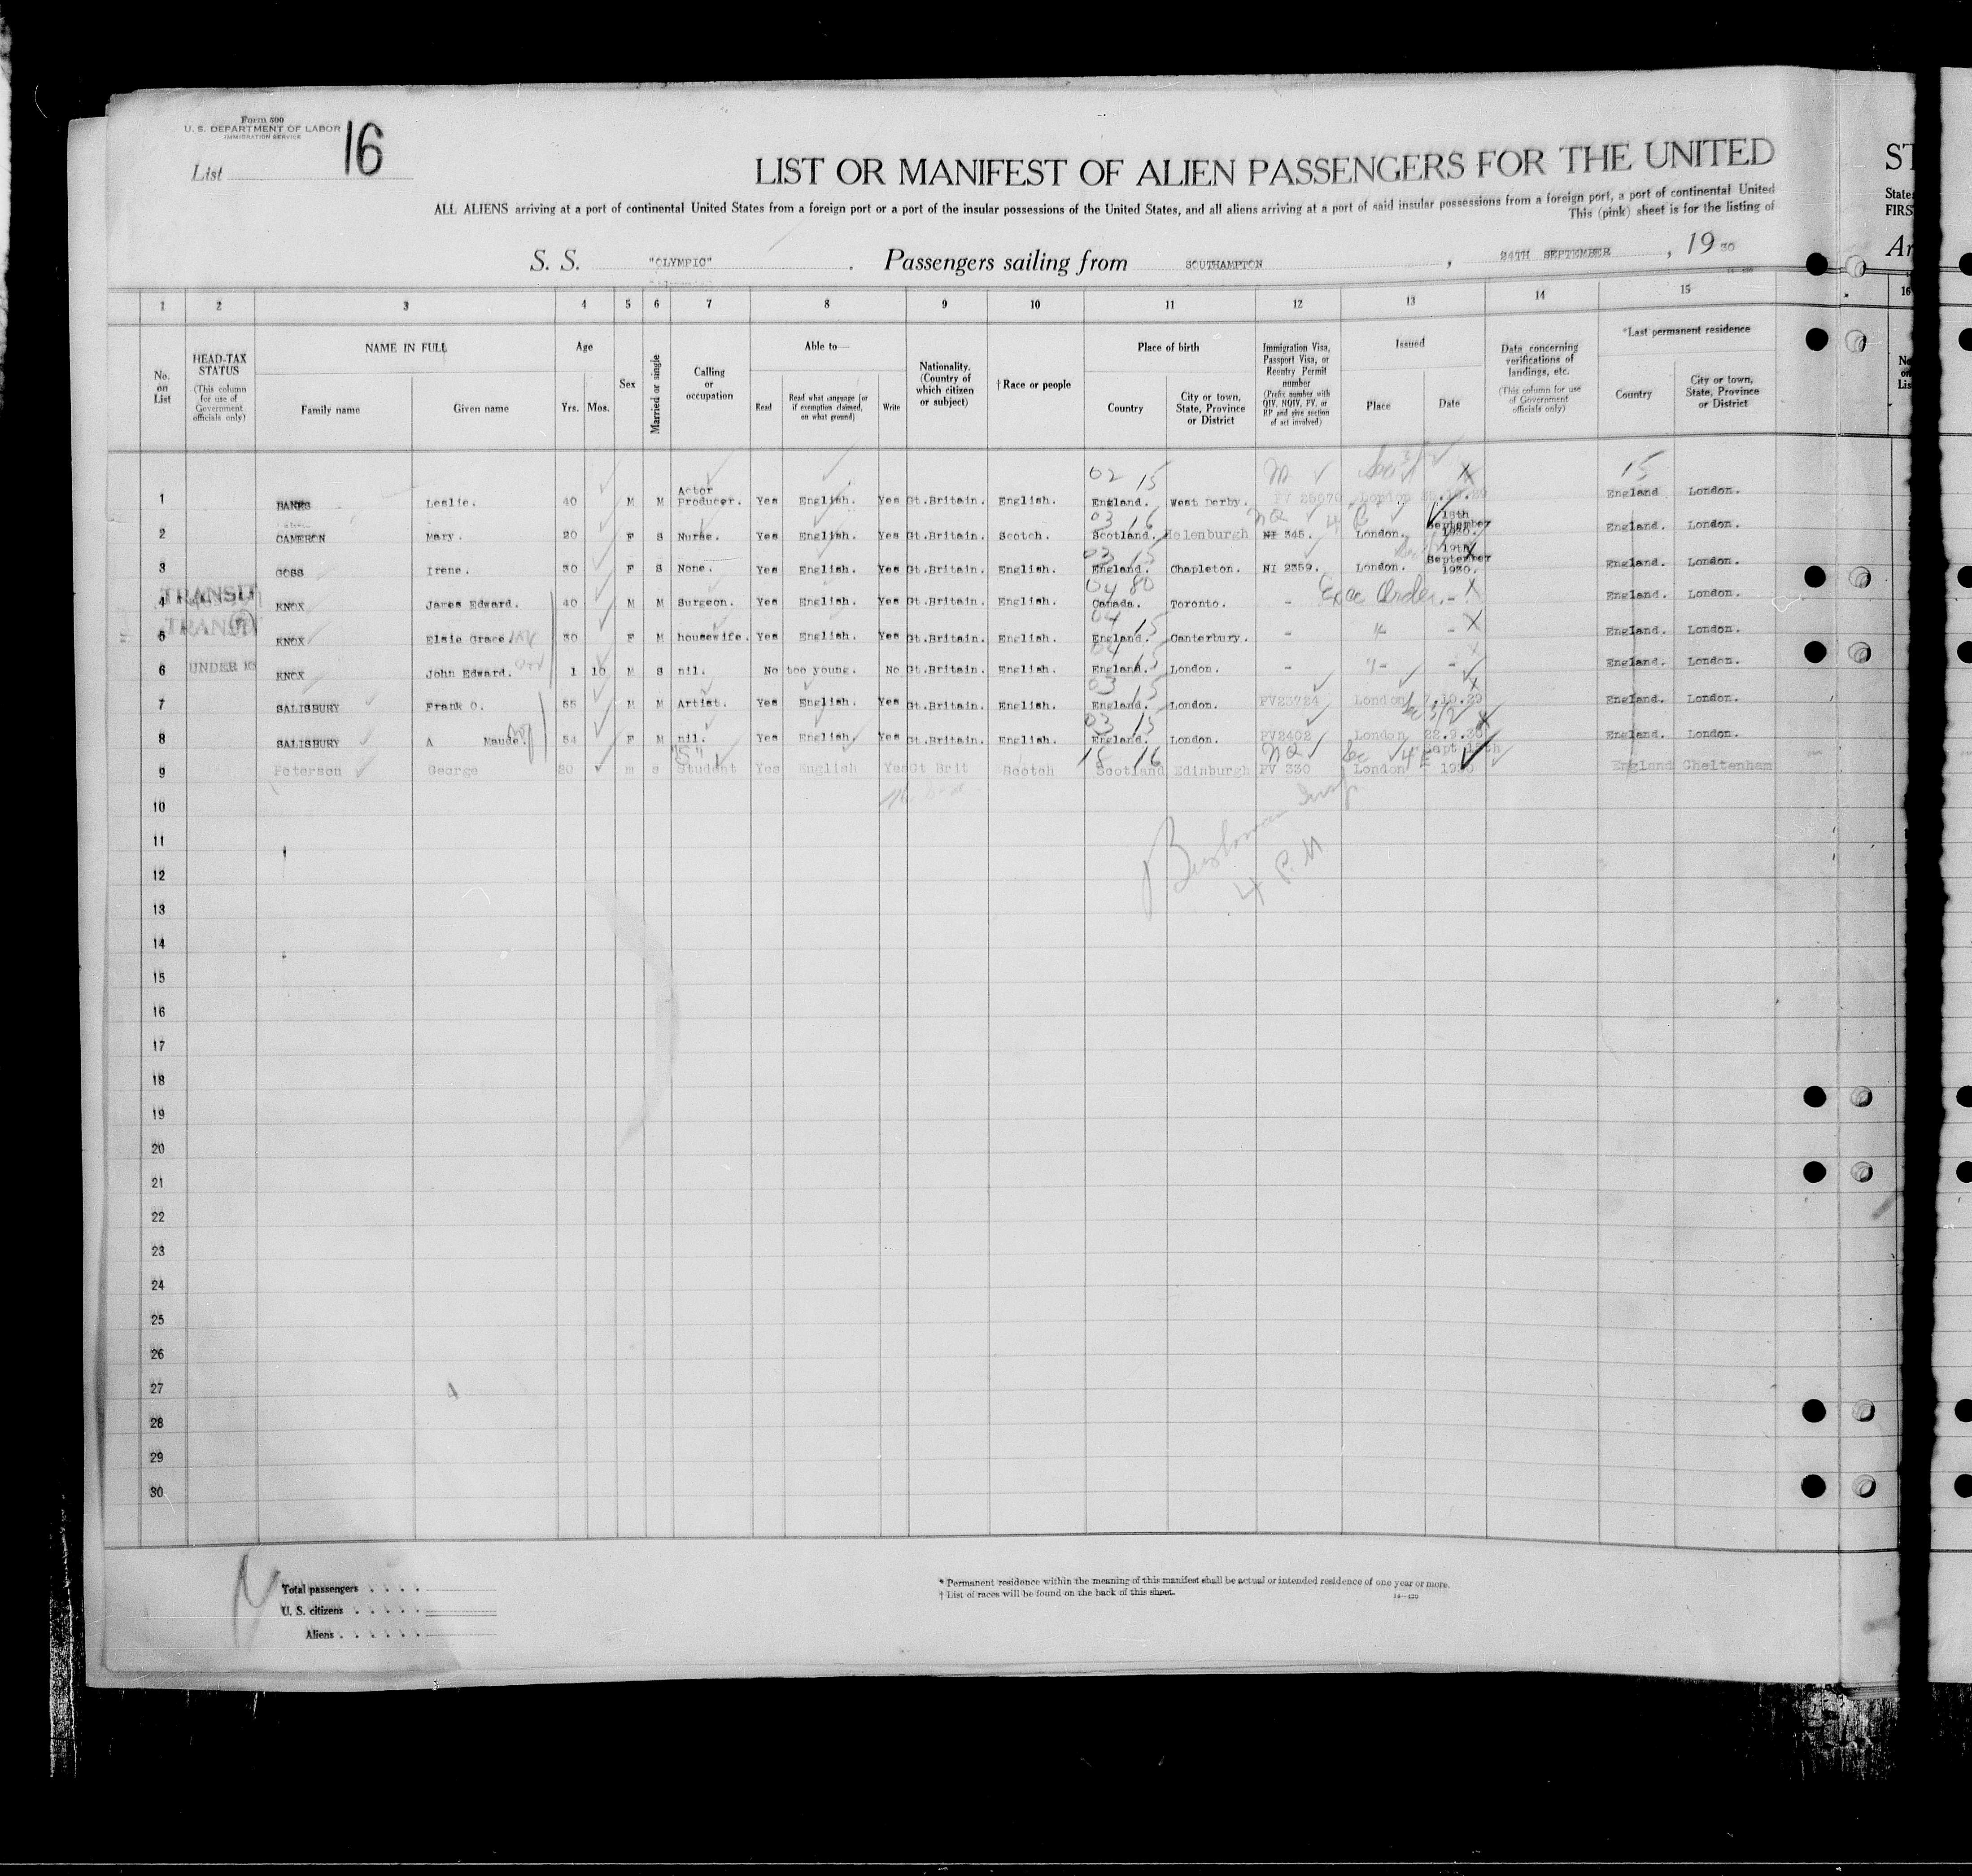 Form 500
U. S. DEPARTMENT OF LABOR
IMMIGRATION SERVICE
List 16
LIST OR MANIFEST OF ALIEN PASSENGERS FOR THE UNITED
ALL ALIENS arriving at a port of continental United States from a foreign port or a port of the insular possessions of the United States, and all aliens arriving at a port of said insular possessions from a foreign port, a port of continental United
This (pink) sheet is for the listing of
S. S. "OLYMPIC" . Passengers sailing from SOUTHAMPTON , 24TH SEPTEMBER , 19 30
1 2 3 4 5 6 7 8 9 10 11 12 13 14 15
No. on List
HEAD-TAX STATUS
(This column for use of Government officials only)
NAME IN FULL
Family name
Given name
Age
Yrs. Mos.
Sex
Married or single
Calling or occupation
Able to—
Read
Read what language [or if exemption claimed, on what ground]
Write
Nationality. (Country of which citizen or subject)
†Race or people
Place of birth
Country
City or town, State, Province or District
Immigration Visa, Passport Visa, or Reentry Permit number
(Prefix number with QIV, NQIV, PV, or RP and give section of act involved)
Issued
Place
Date
Data concerning verifications of landings, etc.
(This column for use of Government officials only)
*Last permanent residence
Country
City or town, State, Province or District
02 15 15
1 BANKS Leslie. 40 M M Actor Producer. Yes English. Yes Gt.Britain. English. England. West Derby. London England London.
03 16
2 CAMERON Mary. 20 F S Nurse. Yes English. Yes Gt.Britain. Scotch. Scotland. Helenburgh NI 345. London. 18th September 1930. England. London.
03 15
3 GOSS Irene. 30 F S None. Yes English. Yes Gt.Britain. English. England. Chapleton. NI 2359. London. 19th September 1930. England. London.
04 80
TRANSIT
4 KNOX James Edward. 40 M M Surgeon. Yes English. Yes Gt.Britain. English. Canada. Toronto. - Exec Order. - England. London.
04 15
TRANSIT
5 KNOX Elsie Grace. 30 F M housewife. Yes English. Yes Gt.Britain. English. England. Canterbury. - " - England. London.
04 15
UNDER 16
6 KNOX John Edward. 1 10 M S nil. No too young. No Gt.Britain. English. England. London. - " - England. London.
03 15
7 SALISBURY Frank O. 55 M M Artist. Yes English. Yes Gt.Britain. English. England. London. PV23724 London 7.10.29 England. London.
03 15
8 SALISBURY A Maude. 54 F M nil. Yes English. Yes Gt.Britain. English. England. London. PV2402 London 22.9.30 England. London.
"S" 18 16
9 Peterson George 20 m s Student Yes English Yes Gt Brit Scotch Scotland Edinburgh PV 330 London 1930 England Cheltenham
10
11
12
4 P.M
13
14
15
16
17
18
19
20
21
22
23
24
25
26
27
28
29
30
Total passengers . . . .
U. S. citizens . . . . .
Aliens . . . . . .
* Permanent residence within the meaning of this manifest shall be actual or intended residence of one year or more.
† List of races will be found on the back of this sheet.
ST
State
FIRS
Ar
16
No
on
Lis